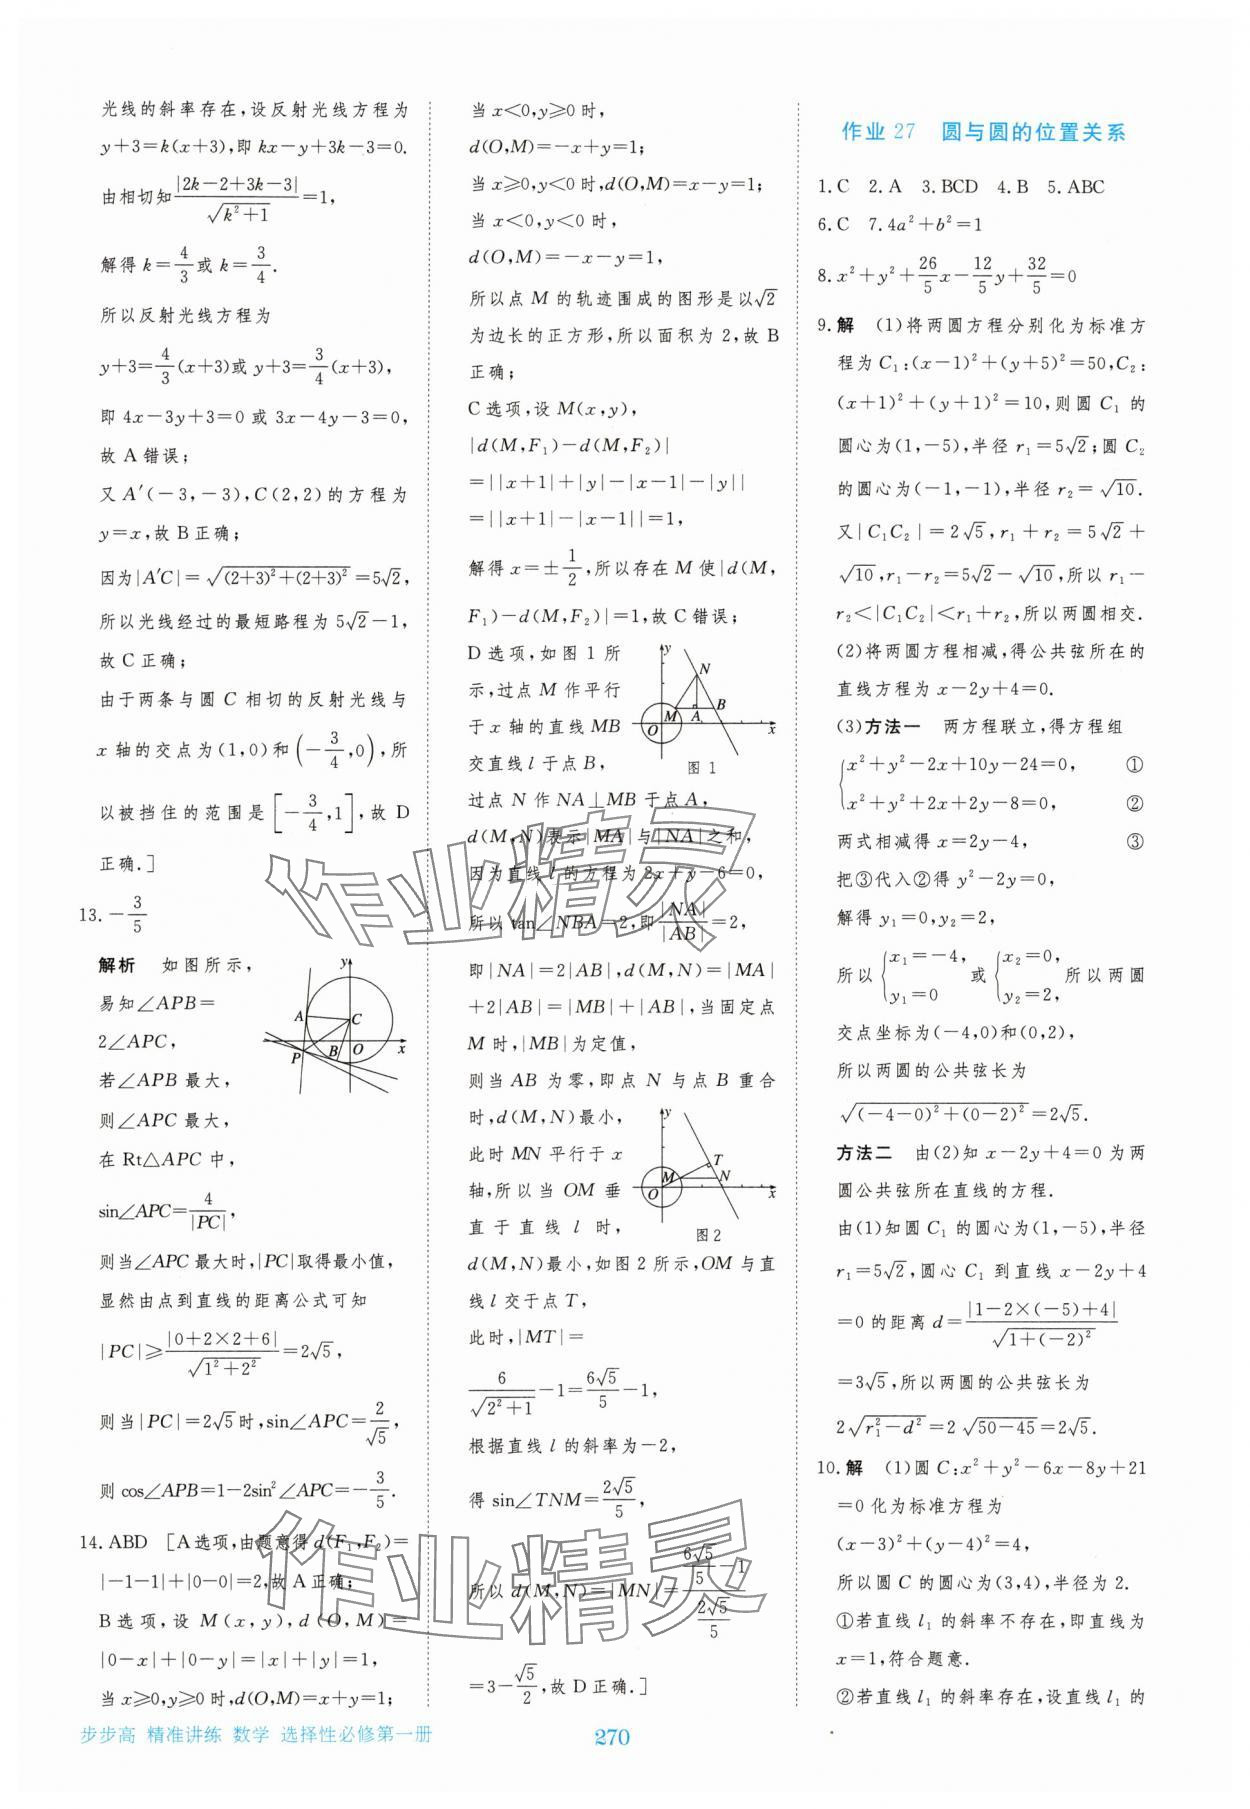 光线的斜率存在,设反射光线方程为
y+3=k(x+3),即 kx-y+3k-3=0.
由相切知|2k-2+3k-3|/√(k²+1)=1,
解得 k=4/3或 k=3/4.
所以反射光线方程为
y+3=4/3(x+3)或 y+3=3/4(x+3),
即 4x-3y+3=0 或 3x-4y-3=0,
故 A 错误;
又 A′(-3,-3),C(2,2)的方程为
y=x,故 B 正确;
因为|A′C|=√((2+3)²+(2+3)²)=5√2,
所以光线经过的最短路程为 5√2-1,
故 C 正确;
由于两条与圆 C 相切的反射光线与
x 轴的交点为(1,0)和(-3/4,0),所
以被挡住的范围是[-3/4,1],故 D
正确.]
13.-3/5
解析 如图所示,
易知∠APB=
2∠APC,
若∠APB 最大,
则∠APC 最大,
在 Rt△APC 中,
sin∠APC=4/|PC|,
y
A
C
P
B
O
x
则当∠APC 最大时,|PC|取得最小值,
显然由点到直线的距离公式可知
|PC|≥|0+2×2+6|/√(1²+2²)=2√5,
则当|PC|=2√5时,sin∠APC=2/√5,
则 cos∠APB=1-2sin²∠APC=-3/5.
14.ABD [A 选项,由题意得 d(F₁,F₂)=
|-1-1|+|0-0|=2,故 A 正确;
B 选项,设 M(x,y),d(O,M)=
|0-x|+|0-y|=|x|+|y|=1,
当 x≥0,y≥0 时,d(O,M)=x+y=1;
当 x<0,y≥0 时,
d(O,M)=-x+y=1;
当 x≥0,y<0 时,d(O,M)=x-y=1;
当 x<0,y<0 时,
d(O,M)=-x-y=1,
所以点 M 的轨迹围成的图形是以√2
为边长的正方形,所以面积为 2,故 B
正确;
C 选项,设 M(x,y),
|d(M,F₁)-d(M,F₂)|
=||x+1|+|y|-|x-1|-|y||
=||x+1|-|x-1||=1,
解得 x=±1/2,所以存在 M 使|d(M,
F₁)-d(M,F₂)|=1,故 C 错误;
D 选项,如图 1 所
示,过点 M 作平行
于 x 轴的直线 MB
交直线 l 于点 B,
y
N
M
A
B
O
x
图 1
过点 N 作 NA⊥MB 于点 A,
d(M,N)表示|MA|与|NA|之和,
因为直线 l 的方程为 2x+y-6=0,
所以 tan∠NBA=2,即|NA|/|AB|=2,
即|NA|=2|AB|,d(M,N)=|MA|
+2|AB|=|MB|+|AB|,当固定点
M 时,|MB|为定值,
则当 AB 为零,即点 N 与点 B 重合
时,d(M,N)最小,
此时 MN 平行于 x
轴,所以当 OM 垂
直于直线 l 时,
y
T
M
N
O
x
图 2
d(M,N)最小,如图 2 所示,OM 与直
线 l 交于点 T,
此时,|MT|=
6/√(2²+1)-1=6√5/5-1,
根据直线 l 的斜率为-2,
得 sin∠TNM=2√5/5,
所以 d(M,N)=|MN|=(6√5/5-1)/(2√5/5)
=3-√5/2,故 D 正确.]
作业 27 圆与圆的位置关系
1.C 2.A 3.BCD 4.B 5.ABC
6.C 7.4a²+b²=1
8.x²+y²+26/5x-12/5y+32/5=0
9.解 (1)将两圆方程分别化为标准方
程为 C₁:(x-1)²+(y+5)²=50,C₂:
(x+1)²+(y+1)²=10,则圆 C₁ 的
圆心为(1,-5),半径 r₁=5√2;圆 C₂
的圆心为(-1,-1),半径 r₂=√10.
又|C₁C₂|=2√5,r₁+r₂=5√2+
√10,r₁-r₂=5√2-√10,所以 r₁-
r₂<|C₁C₂|<r₁+r₂,所以两圆相交.
(2)将两圆方程相减,得公共弦所在的
直线方程为 x-2y+4=0.
(3)方法一 两方程联立,得方程组
{x²+y²-2x+10y-24=0, ①
x²+y²+2x+2y-8=0, ②
两式相减得 x=2y-4, ③
把③代入②得 y²-2y=0,
解得 y₁=0,y₂=2,
所以{x₁=-4,y₁=0 或{x₂=0,y₂=2,所以两圆
交点坐标为(-4,0)和(0,2),
所以两圆的公共弦长为
√((-4-0)²+(0-2)²)=2√5.
方法二 由(2)知 x-2y+4=0 为两
圆公共弦所在直线的方程.
由(1)知圆 C₁ 的圆心为(1,-5),半径
r₁=5√2,圆心 C₁ 到直线 x-2y+4
=0 的距离 d=|1-2×(-5)+4|/√(1+(-2)²)
=3√5,所以两圆的公共弦长为
2√(r₁²-d²)=2√(50-45)=2√5.
10.解 (1)圆 C:x²+y²-6x-8y+21
=0 化为标准方程为
(x-3)²+(y-4)²=4,
所以圆 C 的圆心为(3,4),半径为 2.
①若直线 l₁ 的斜率不存在,即直线为
x=1,符合题意.
②若直线 l₁ 的斜率存在,设直线 l₁ 的
作业精灵
作业精灵
步步高 精准讲练 数学 选择性必修第一册
270